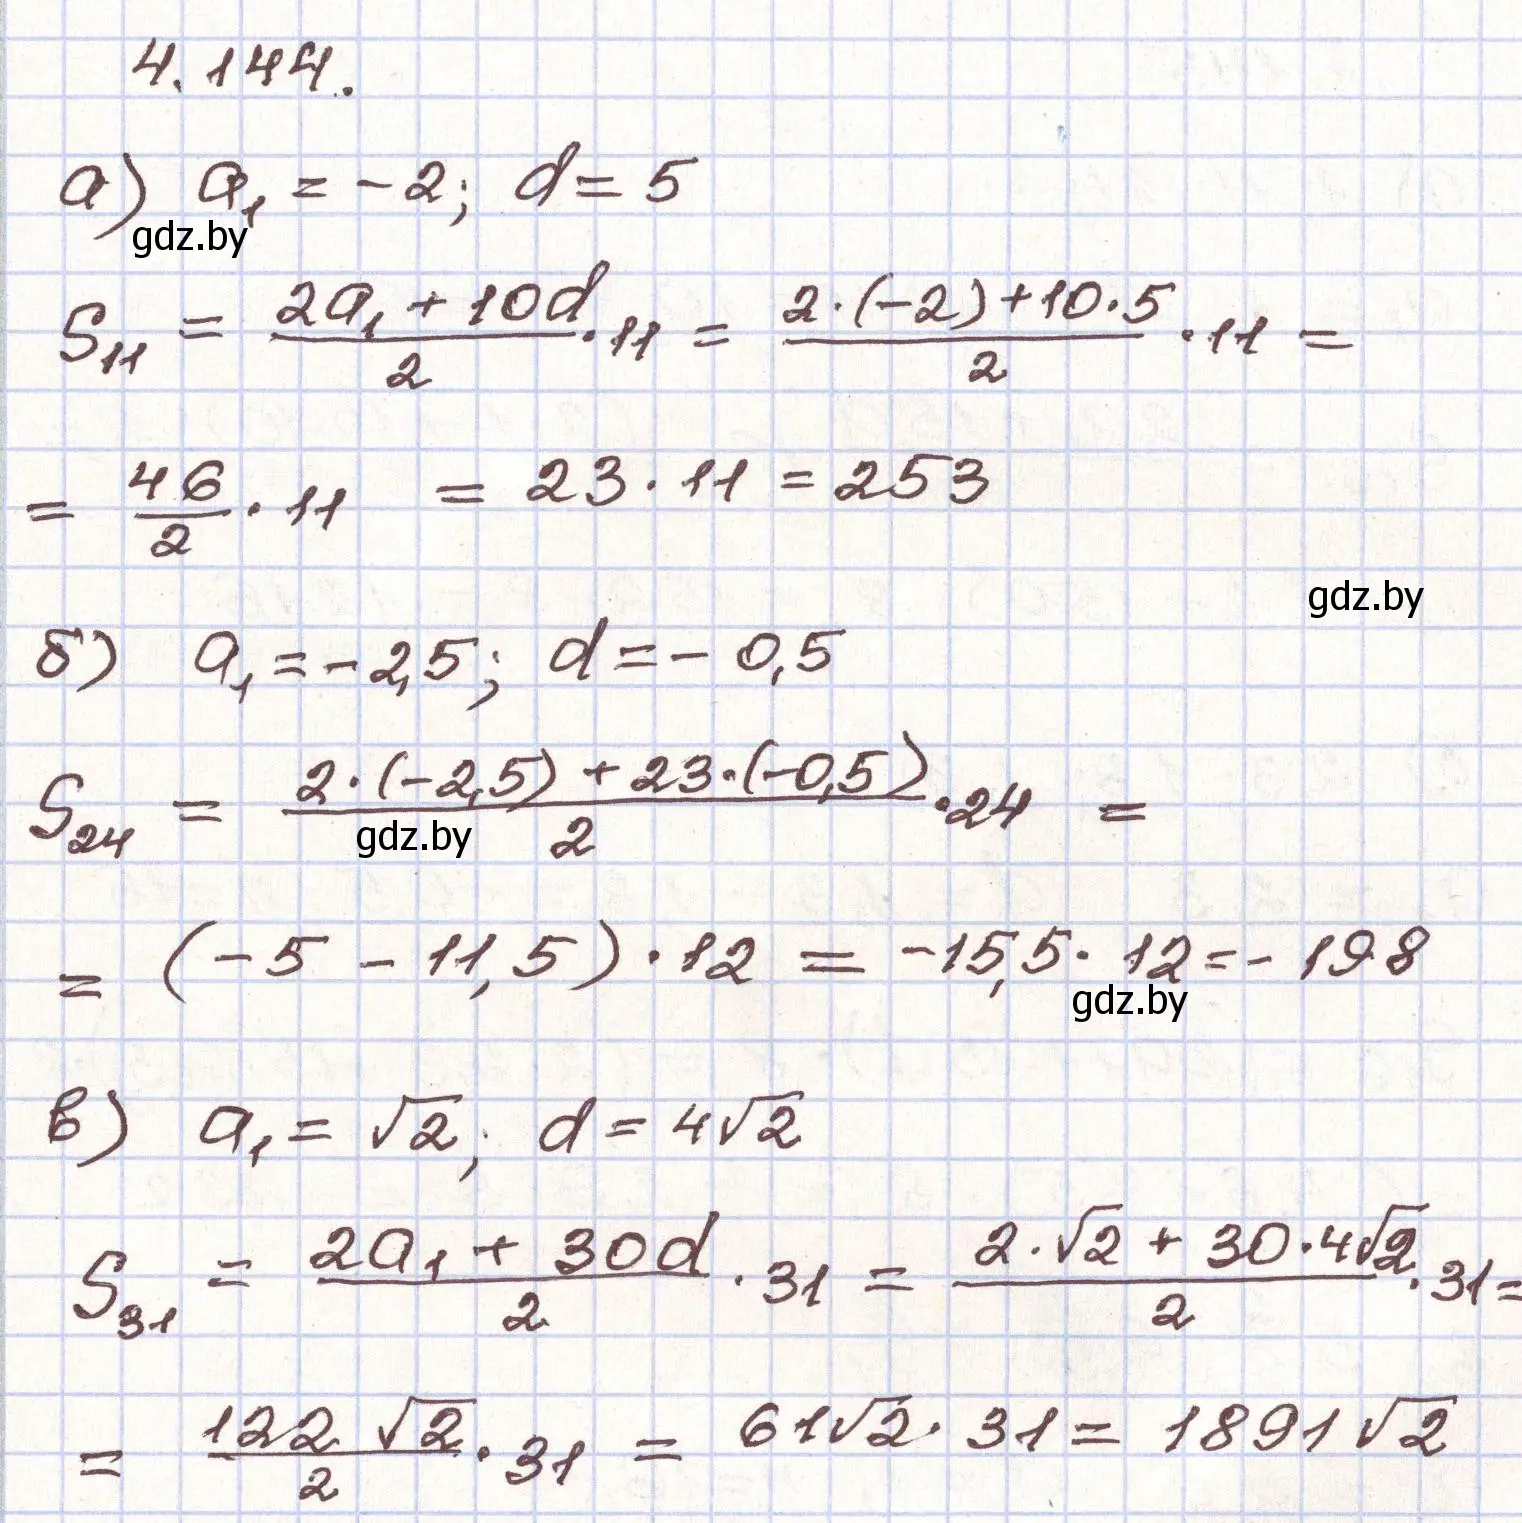 4.144.
а) a₁ = -2; d = 5
gdz.by
S₁₁ = (2a₁ + 10d)/2 · 11 = (2·(-2)+10·5)/2 · 11 =
= 46/2 · 11 = 23 · 11 = 253
gdz.by
б) a₁ = -2,5; d = - 0,5
S₂₄ = (2·(-2,5) + 23·(-0,5))/2 · 24 =
gdz.by
= (-5 - 11,5) · 12 = -15,5 · 12 = - 198
gdz.by
в) a₁ = √2; d = 4√2
S₃₁ = (2a₁ + 30d)/2 · 31 = (2·√2 + 30·4√2)/2 · 31 =
= (122 √2)/2 · 31 = 61√2 · 31 = 1891√2